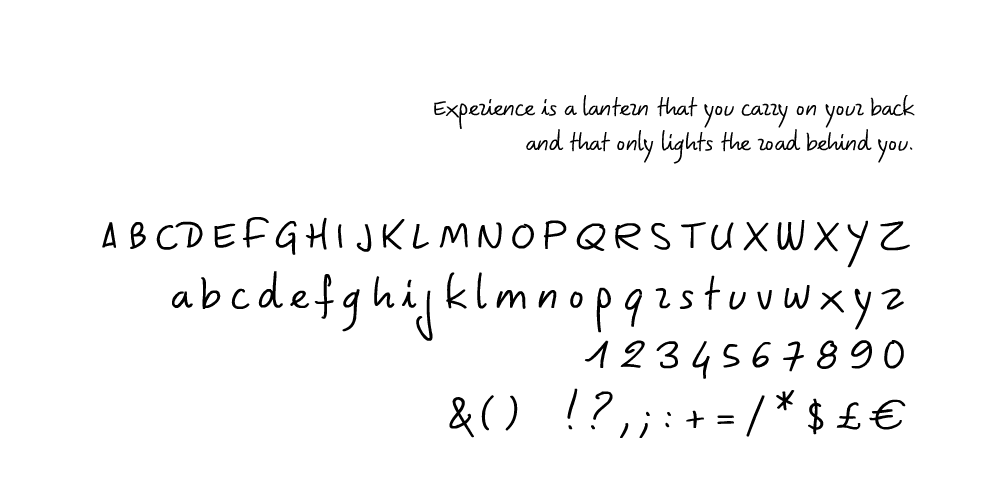 Experience is a lantern that you carry on your back
and that only lights the road behind you.
A B C D E F G H I J K L M N O P Q R S T U X W X Y Z
a b c d e f g h i j k l m n o p q r s t u v w x y z
1 2 3 4 5 6 7 8 9 0
& ( ) ! ? , ; : + = / * $ £ €